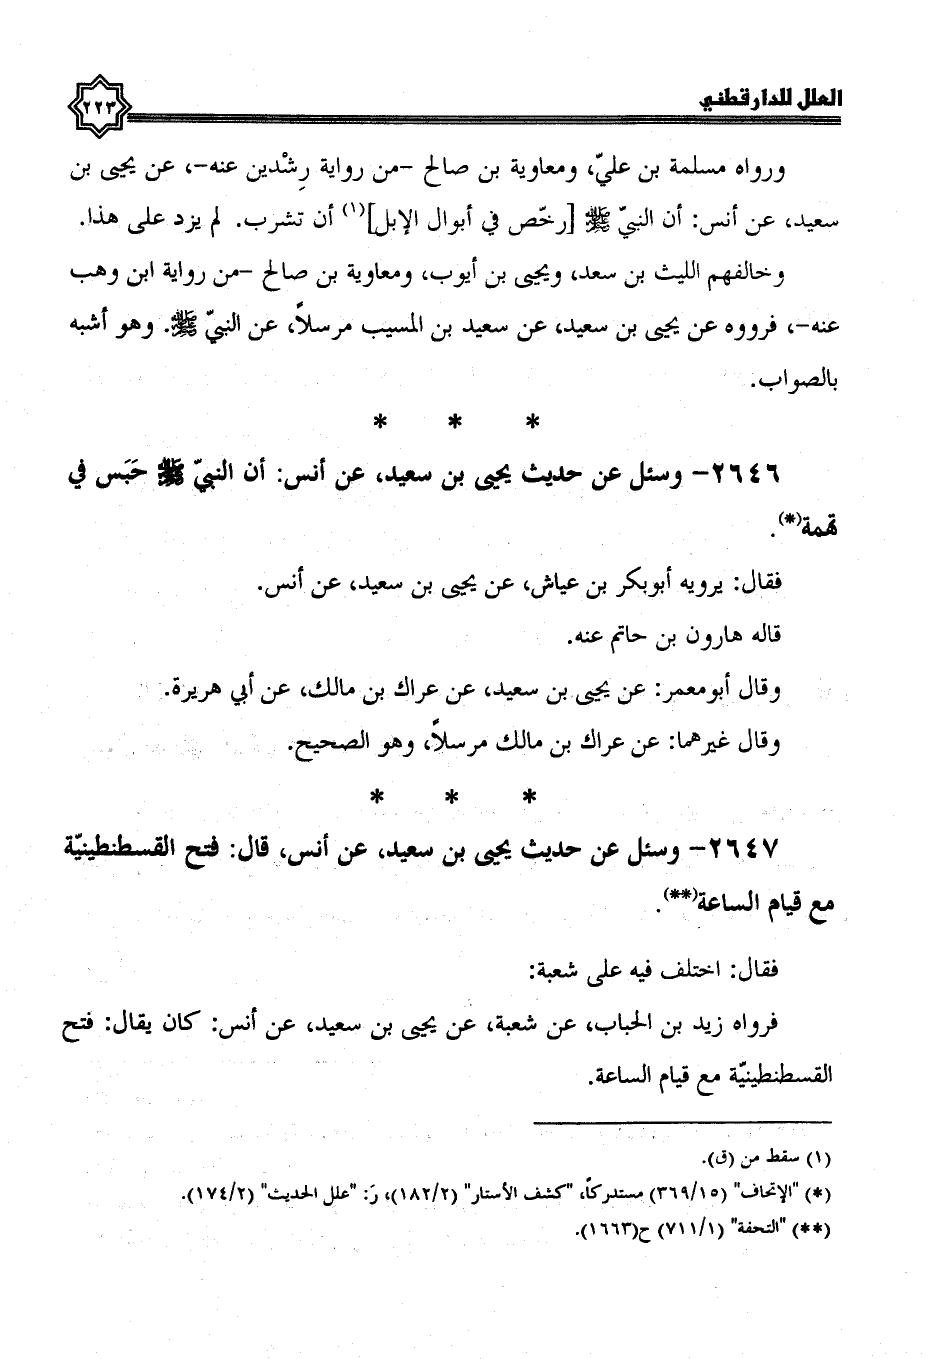 العلل للدارقطني
٢٢٣
ورواه مسلمة بن عليّ، ومعاوية بن صالح -من رواية رِشْدين عنه-، عن يحيى بن
سعيد، عن أنس: أن النبيّ ﷺ [رخّص في أبوال الإبل](١) أن تشرب. لم يزد على هذا.
وخالفهم الليث بن سعد، ويحيى بن أيوب، ومعاوية بن صالح -من رواية ابن وهب
عنه-، فرووه عن يحيى بن سعيد، عن سعيد بن المسيب مرسلاً، عن النبيّ ﷺ. وهو أشبه
بالصواب.
* * *
٢٦٤٦- وسئل عن حديث يحيى بن سعيد، عن أنس: أن النبيّ ﷺ حَبَس في
تهمة(*).
فقال: يرويه أبوبكر بن عياش، عن يحيى بن سعيد، عن أنس.
قاله هارون بن حاتم عنه.
وقال أبومعمر: عن يحيى بن سعيد، عن عراك بن مالك، عن أبي هريرة.
وقال غيرهما: عن عراك بن مالك مرسلاً، وهو الصحيح.
* * *
٢٦٤٧- وسئل عن حديث يحيى بن سعيد، عن أنس، قال: فتح القسطنطينيّة
مع قيام الساعة(**).
فقال: اختلف فيه على شعبة:
فرواه زيد بن الحباب، عن شعبة، عن يحيى بن سعيد، عن أنس: كان يقال: فتح
القسطنطينيّة مع قيام الساعة.
(١) سقط من (ق).
(*) "الإتحاف" (٣٦٩/١٥) مستدركاً، "كشف الأستار" (١٨٢/٢)، رَ: "علل الحديث" (١٧٤/٢).
(**) "التحفة" (٧١١/١) ح(١٦٦٣).